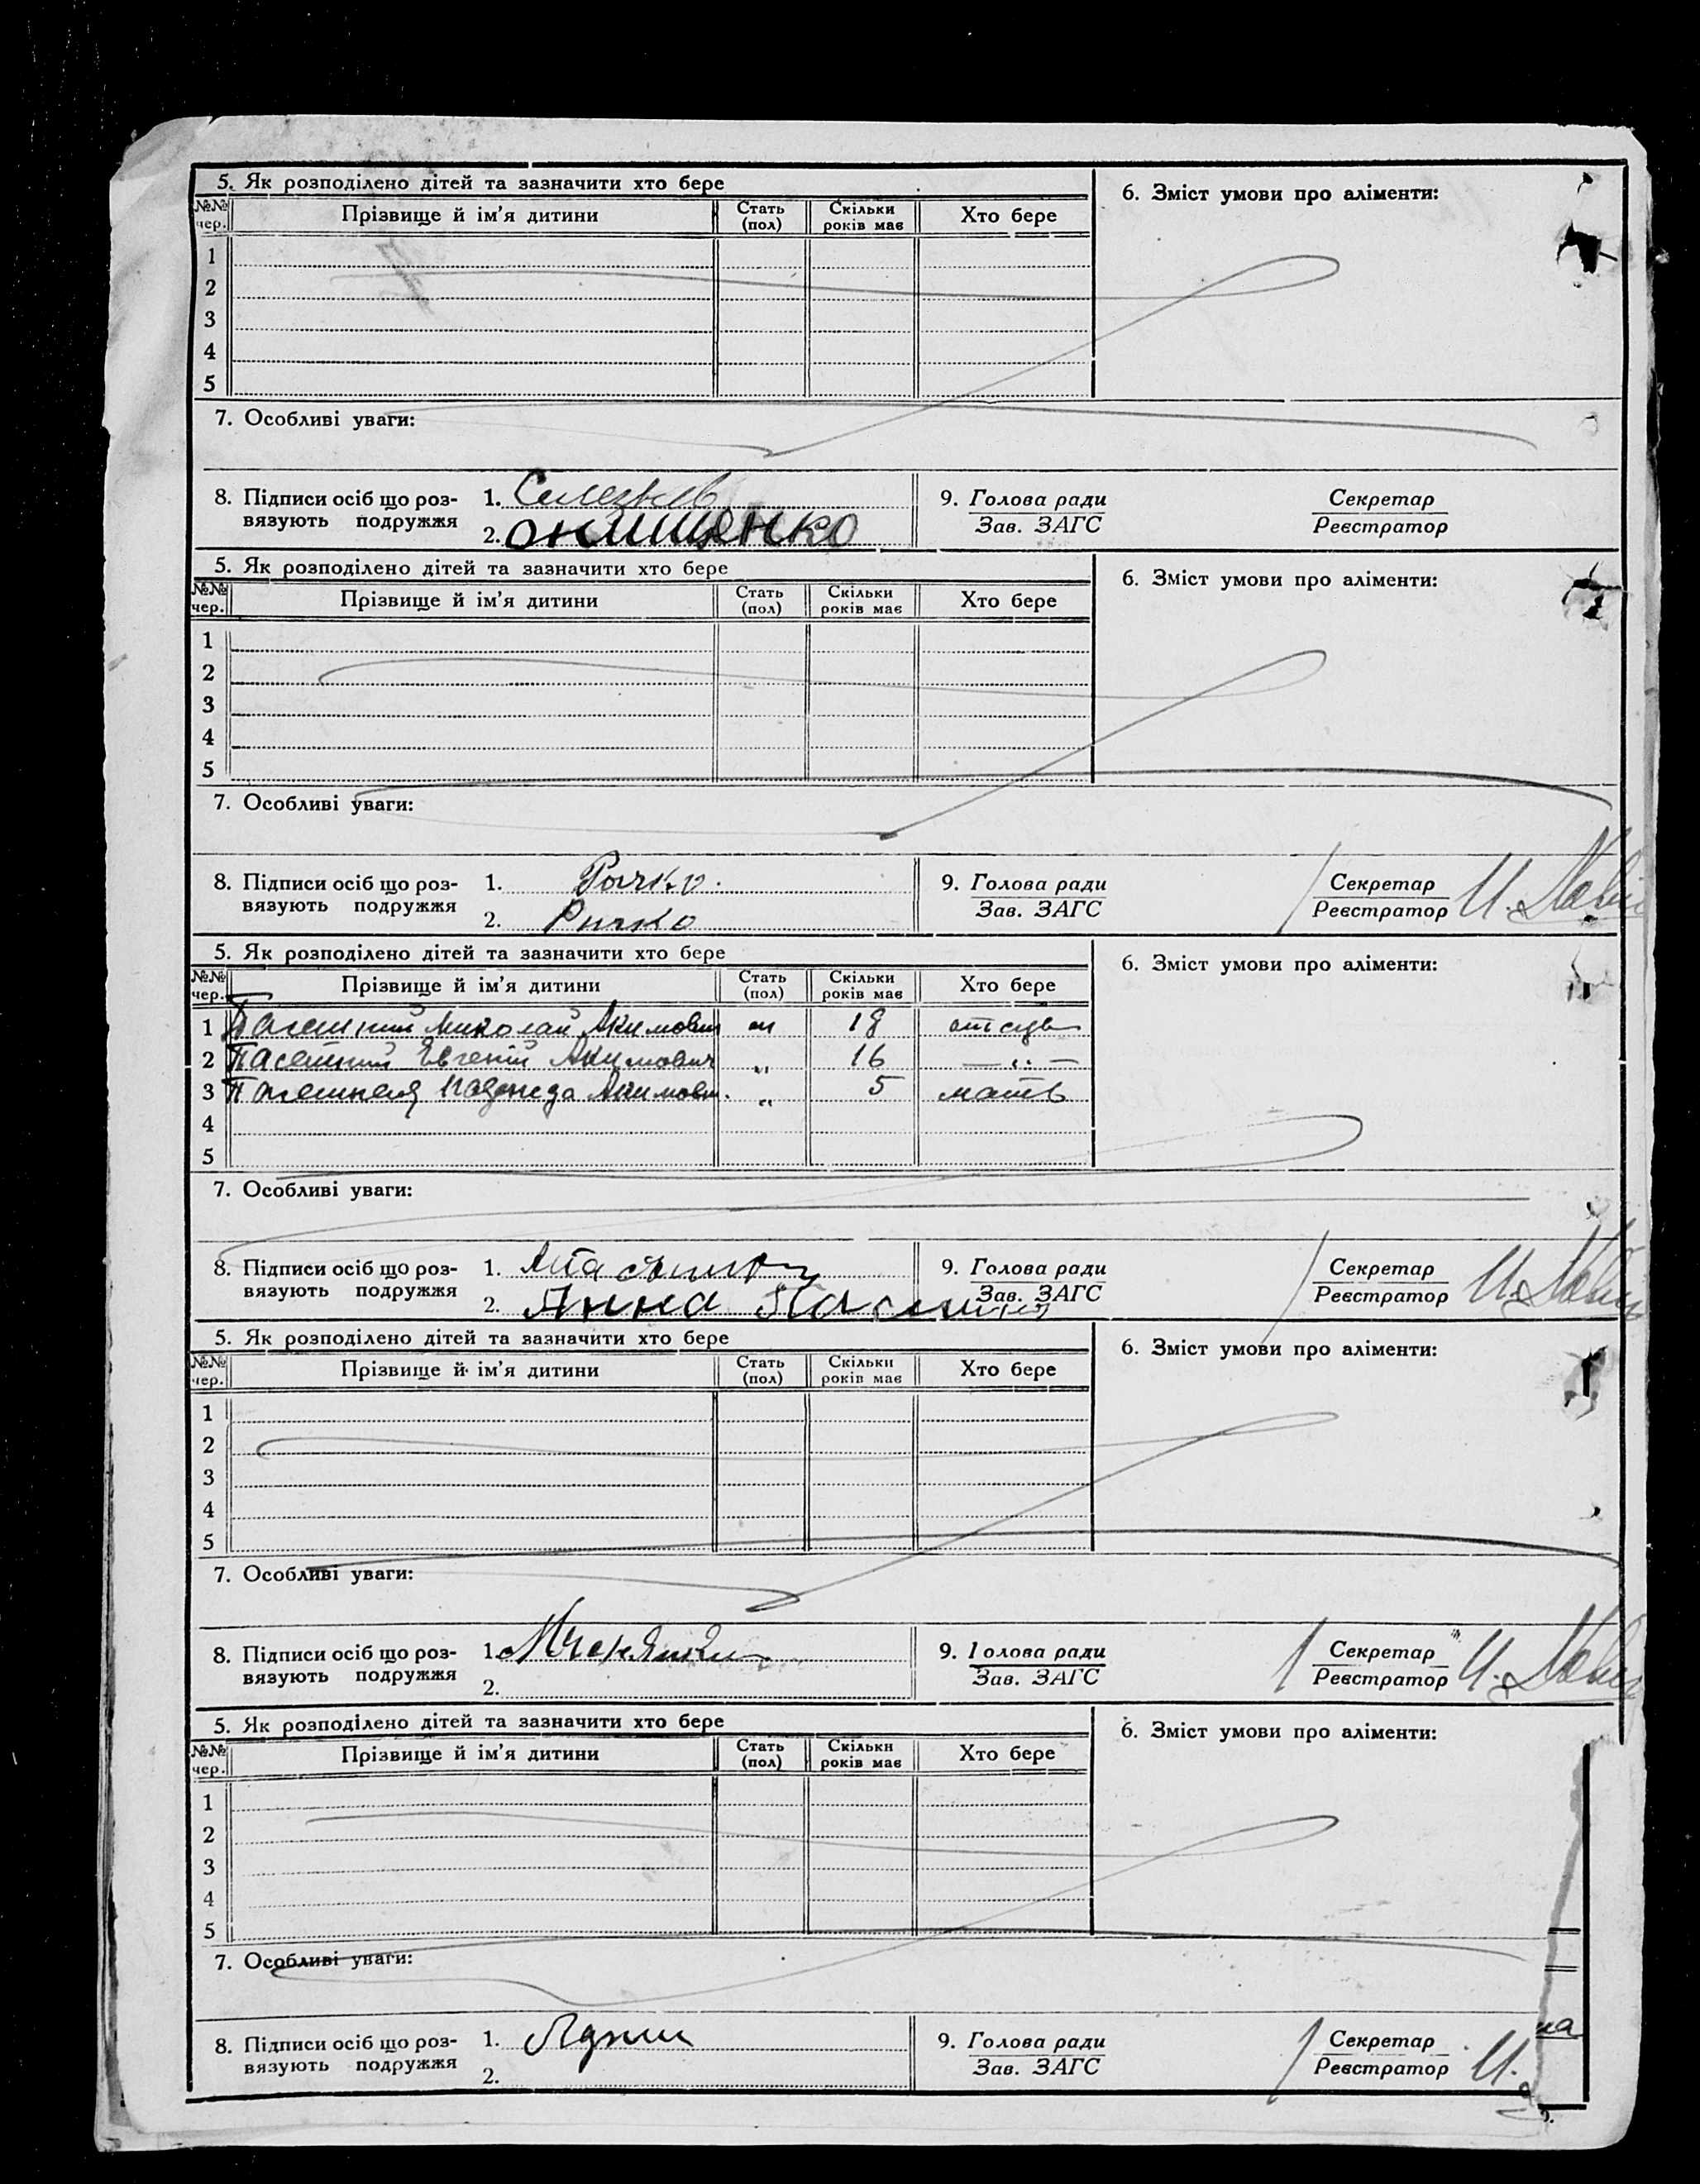 5. Як розподілено дітей та зазначити хто бере
6. Зміст умови про аліменти:
№№ чер. Прізвище й ім'я дитини Стать (пол) Скільки років має Хто бере
1
2
3
4
5
7. Особливі уваги:
8. Підписи осіб що роз-вязують подружжя
1.
2. Онищенко
9. Голова ради
Зав. ЗАГС
Секретар
Реєстратор
5. Як розподілено дітей та зазначити хто бере
6. Зміст умови про аліменти:
№№ чер. Прізвище й ім'я дитини Стать (пол) Скільки років має Хто бере
1
2
3
4
5
7. Особливі уваги:
8. Підписи осіб що роз-вязують подружжя
1.
2. Ричко
9. Голова ради
Зав. ЗАГС
Секретар
Реєстратор И.
5. Як розподілено дітей та зазначити хто бере
6. Зміст умови про аліменти:
№№ чер. Прізвище й ім'я дитини Стать (пол) Скільки років має Хто бере
1 Миколай Акимович м 18 отець
2 Евгений Акимович " 16 — " —
3 Надежда Акимовн. " 5 мать
4
5
7. Особливі уваги:
8. Підписи осіб що роз-вязують подружжя
1.
2. Анна
9. Голова ради
Зав. ЗАГС
Секретар
Реєстратор И.
5. Як розподілено дітей та зазначити хто бере
6. Зміст умови про аліменти:
№№ чер. Прізвище й ім'я дитини Стать (пол) Скільки років має Хто бере
1
2
3
4
5
7. Особливі уваги:
8. Підписи осіб що роз-вязують подружжя
1.
2.
9. Голова ради
Зав. ЗАГС
Секретар
Реєстратор И.
5. Як розподілено дітей та зазначити хто бере
6. Зміст умови про аліменти:
№№ чер. Прізвище й ім'я дитини Стать (пол) Скільки років має Хто бере
1
2
3
4
5
7. Особливі уваги:
8. Підписи осіб що роз-вязують подружжя
1.
2.
9. Голова ради
Зав. ЗАГС
Секретар
Реєстратор И.
на